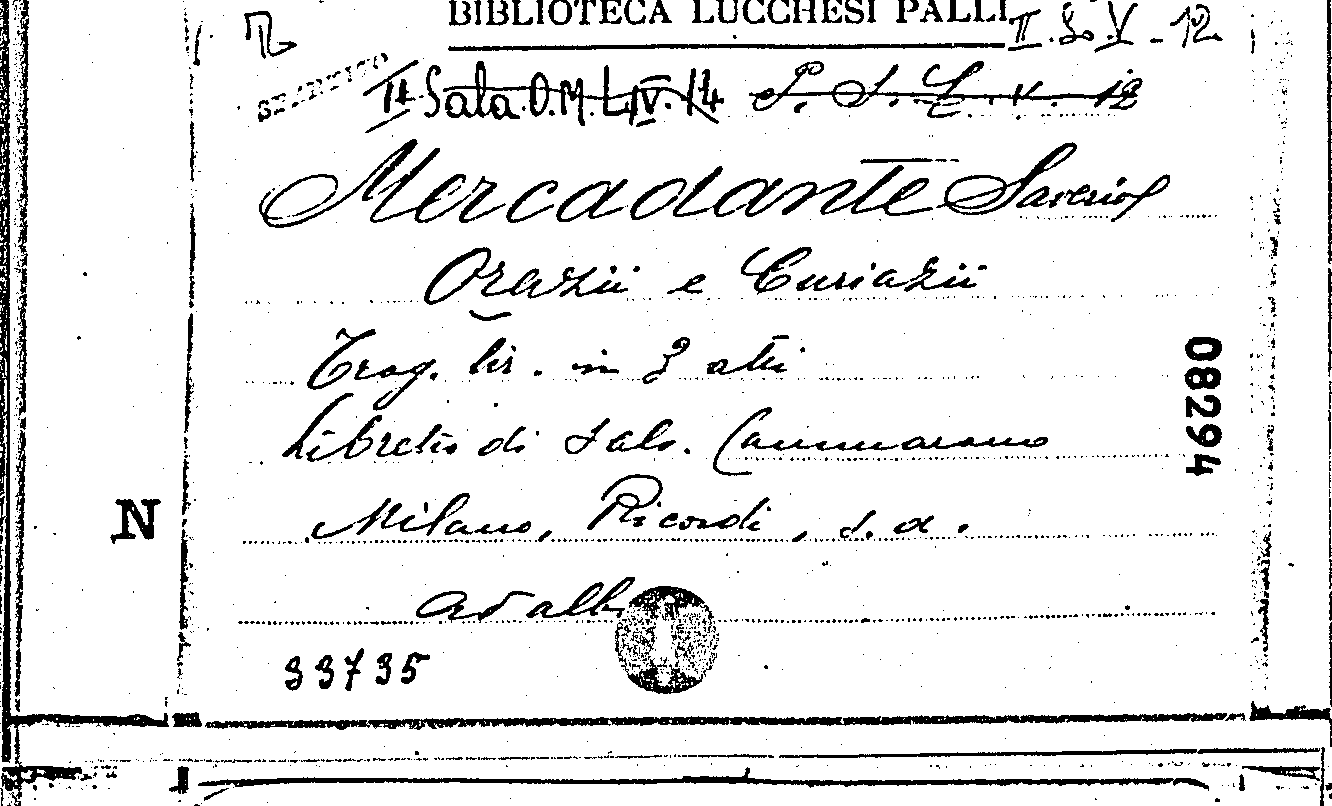 BIBLIOTECA LUCCHESI PALLI
II. S. V - 12
II Sala O.M. L.IV. 14 P. S. L. v. 12
Mercadante Saverio
Orazii e Curiazii
Trag. lir. in 3 atti
Libretto di Salv. Cammarano
Milano, Ricordi, s. a.
ad alb
33735
N
08294